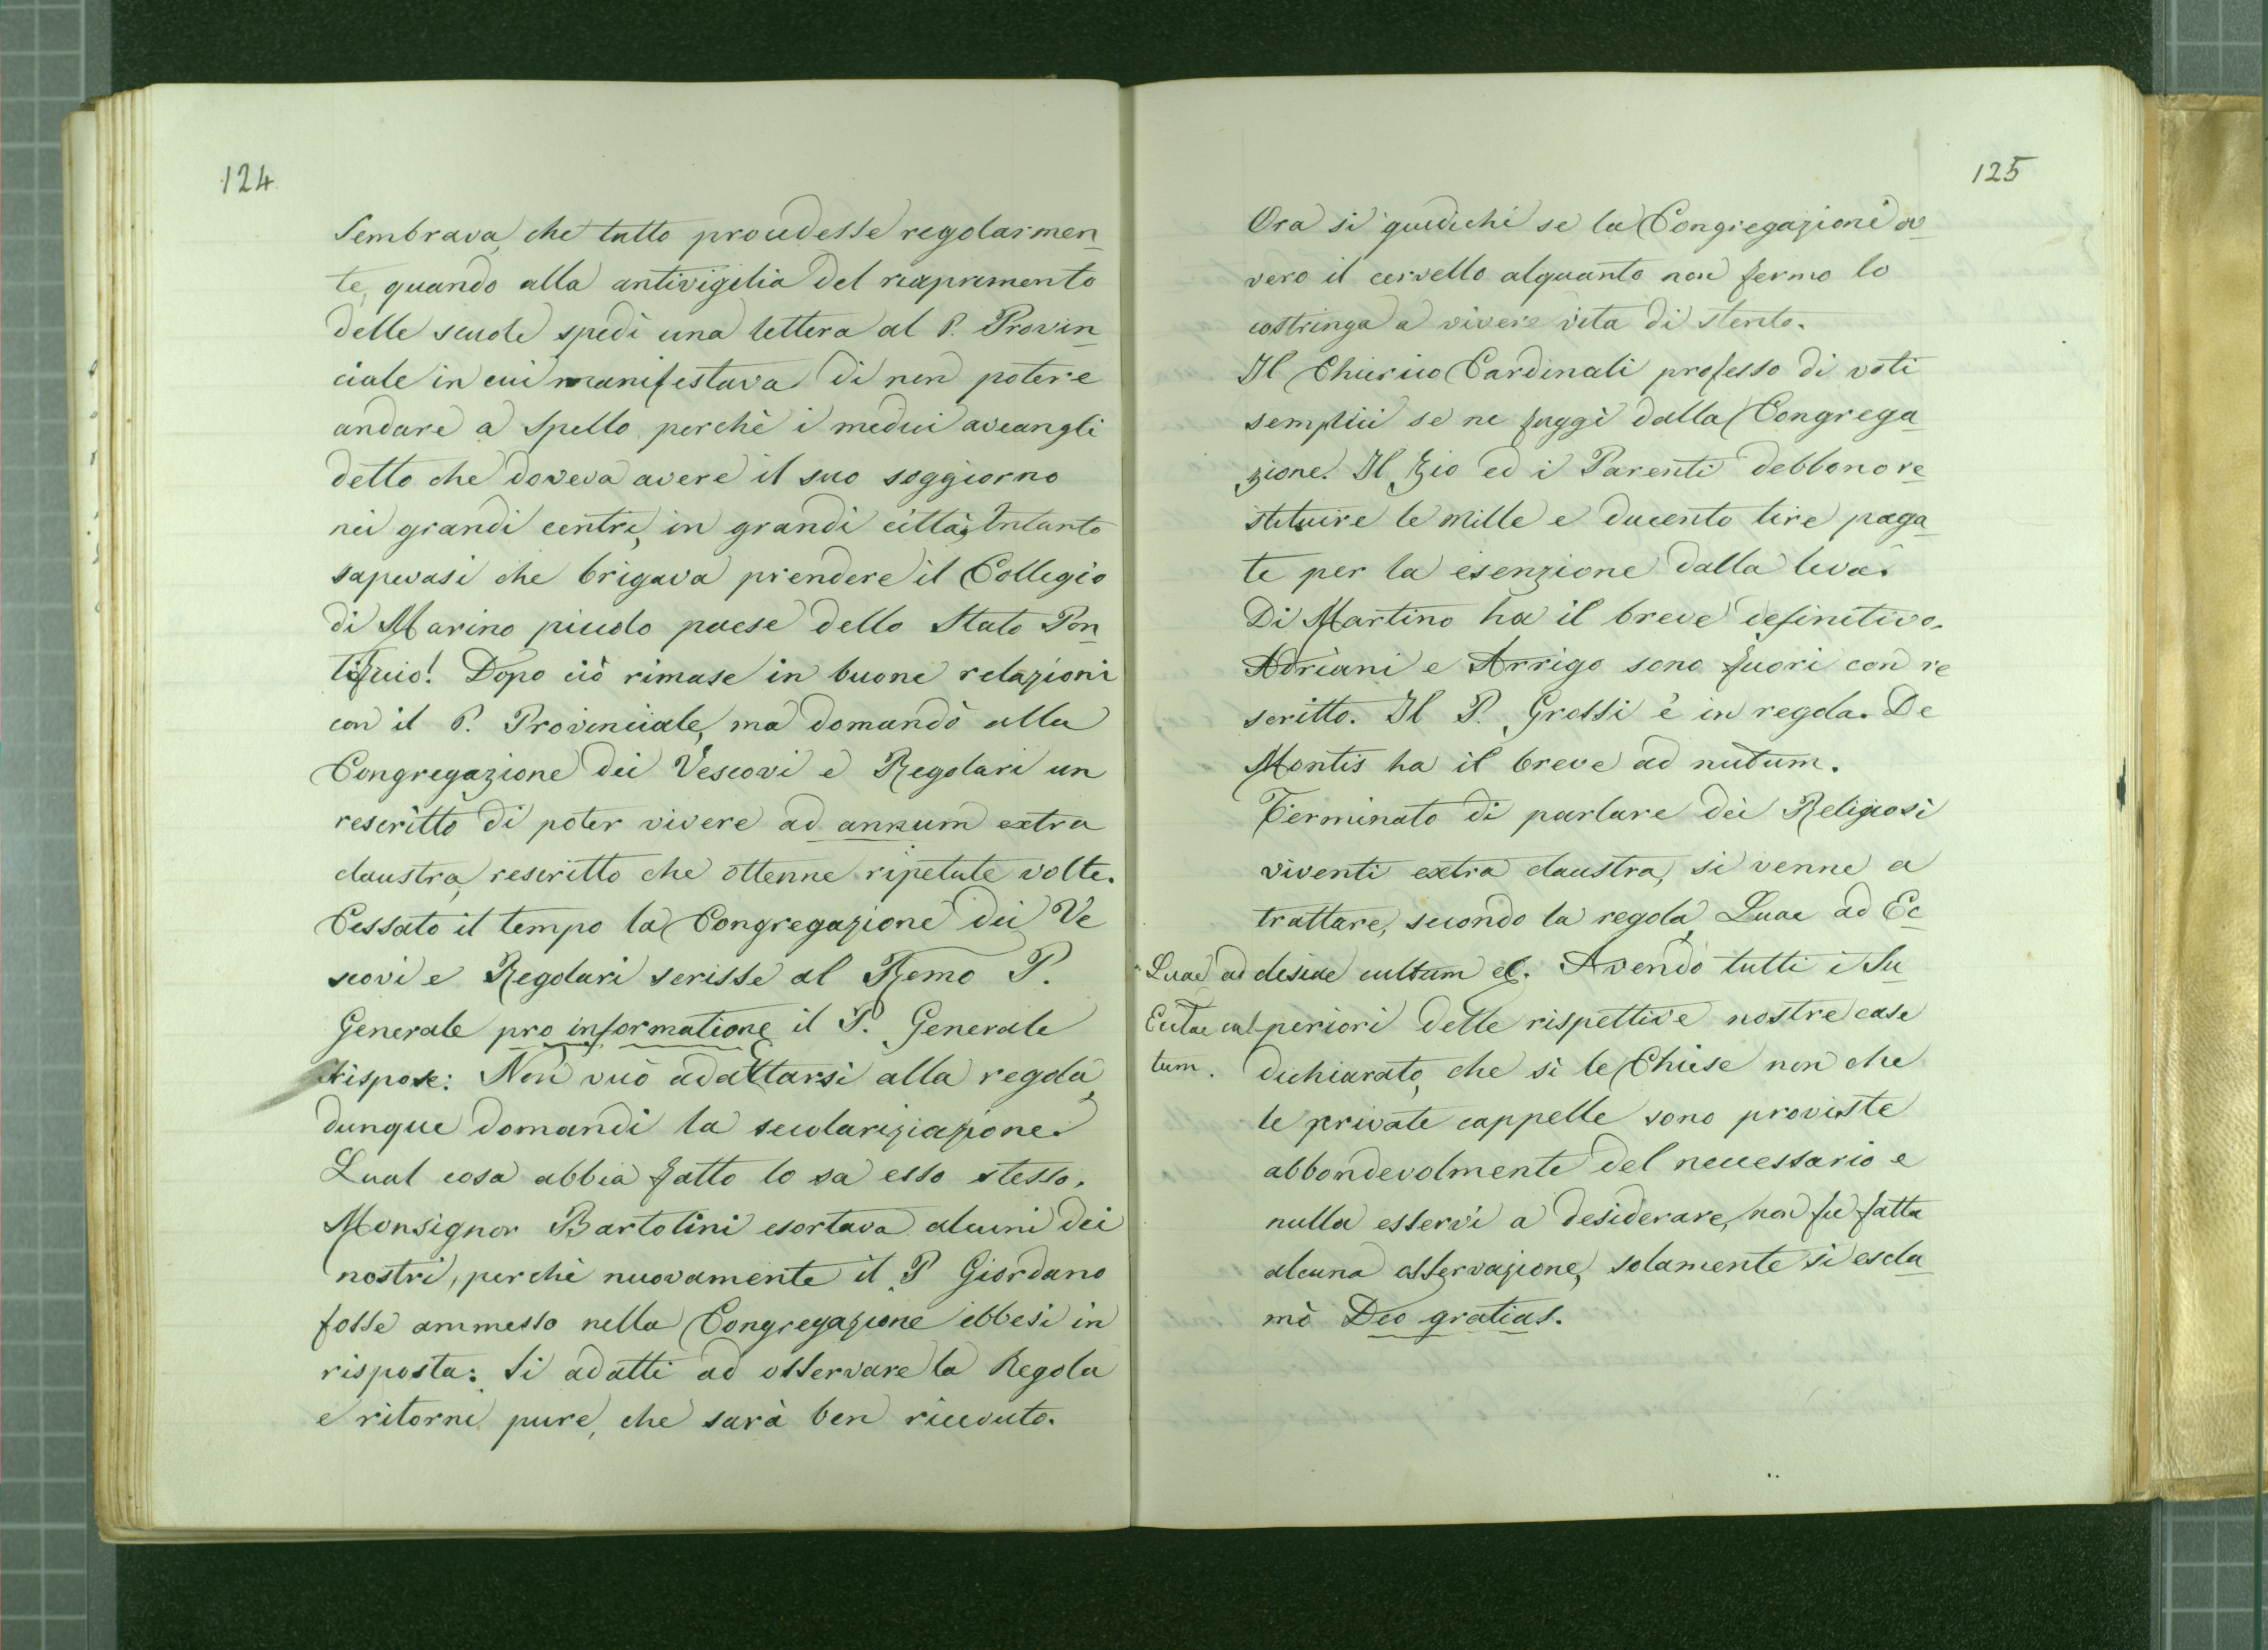 124
Sembrava, che tutto procedesse regolarmen
te, quando alla antivigilia del riaprimento
delle scuole spedì una lettera al P. Provin
ciale in cui manifestava di non potere
andare a Spello perchè i medici aveangli
detto che doveva avere il suo soggiorno
nei grandi centri, in grandi città, Intanto
sapevasi che brigava prendere il Collegio
di Marino piccolo paese dello Stato Pon
tificio! Dopo ciò rimase in buone relazioni
con il P. Provinciale, ma domandò alla
Congregazione dei Vescovi e Regolari un
rescritto di poter vivere ad annum extra
claustra, rescritto che ottenne ripetute volte.
Cessato il tempo la Congregazione dei Ve
scovi e Regolari scrisse al Remo P.
Generale pro informatione il P. Generale
rispose: Non vuò adattarsi alla regola,
dunque domandi la secolariziazione.
Qual cosa abbia fatto lo sa esso stesso.
Monsignor Bartolini esortava alcuni dei
nostri, perchè nuovamente il P Giordano
fosse ammesso nella Congregazione ebbesi in
risposta: Si adatti ad osservare la Regola
e ritorni pure, che sarà ben ricevuto.
125
Ora si giudichi se la Congregazione ov
vero il cervello alquanto non fermo lo
costringa a vivere vita di stento.
Il Chierico Cardinali professo di voti
semplici se ne fuggì dalla Congrega
zione. Il Zio ed i Parenti debbono re
stituire le mille e ducento lire paga
te per la esenzione dalla leva.
Di Martino ha il breve definitivo.
Adriani e Arrigo sono fuori con re
scritto. Il P. Grossi è in regola. De
Montis ha il breve ad nutum.
Terminato di parlare dei Religiosi
viventi extra claustra, si venne a
trattare, secondo la regola, Quae ad Ec
clesiae cultum etc. Avendo tutti i Su
periori delle rispettive nostre case
dichiarato, che sì le Chiese non che
le private cappelle sono proviste
abbondevolmente del necessario e
nulla esservi a desiderare, non fu fatta
alcuna osservazione, solamente si escla
mò Deo gratias.
Quae ad
Eclae cul
tum.